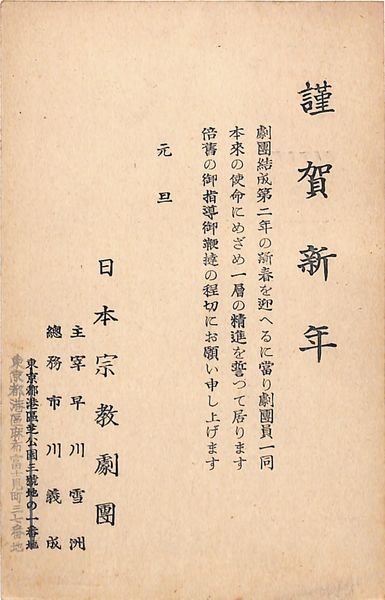 謹賀新年
劇團結成第二年の新春を迎へるに當り劇團員一同
本來の使命にめざめ一層の精進を誓つて居ります
倍舊の御指導御鞭撻の程切にお願い申し上げます
元旦
日本宗敎劇團
主宰早川雪洲
總務市川義成
東京都港區芝公園三號地の一番地
東京都港區麻布富士見町三七番地